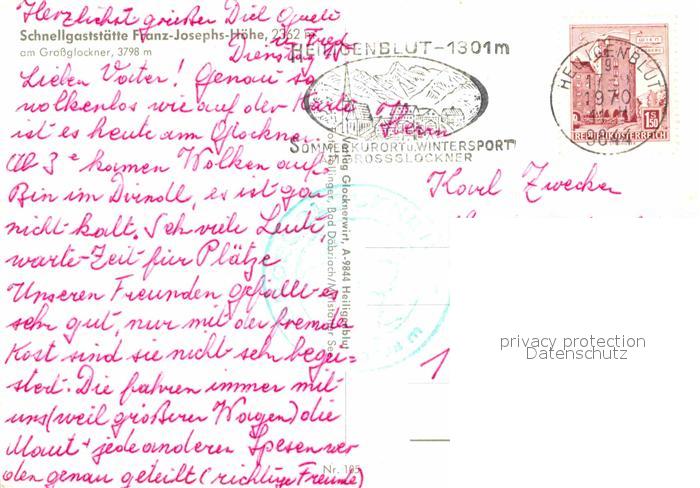 Herzlichst grüßen Dich Gretl
u. Fred
Schnellgaststätte Franz-Josephs-Höhe, 2362 m
am Großglockner, 3798 m
Dienstag
Lieber Vater! Genau so
wolkenlos wie auf der Karte
ist es heute am Glockner.
Ab 3h kamen Wolken auf.
Bin im Dirndl, es ist gar
nicht kalt. Sehr viele Leute,
warte-Zeit für Plätze
Unseren Freunden gefällt es
sehr gut, nur mit der fremden
Kost sind sie nicht sehr begei=
stert. Die fahren immer mit
uns (weil größerer Wagen) die
Maut + jede anderen Spesen wer
den genau geteilt (richtige Freunde)
HEILIGENBLUT-1301m
SOMMERKURORT u. WINTERSPORT
GROSSGLOCKNER
HEILIGENBLUT
1970
9844
1.50
REPUBLIK ÖSTERREICH
Herrn
Karl Zwecker
Verlag Glocknerwirt, A-9844 Heiligenblut
Bad Döbriach/Millstätter See
Nr. 105
1
privacy protection
Datenschutz